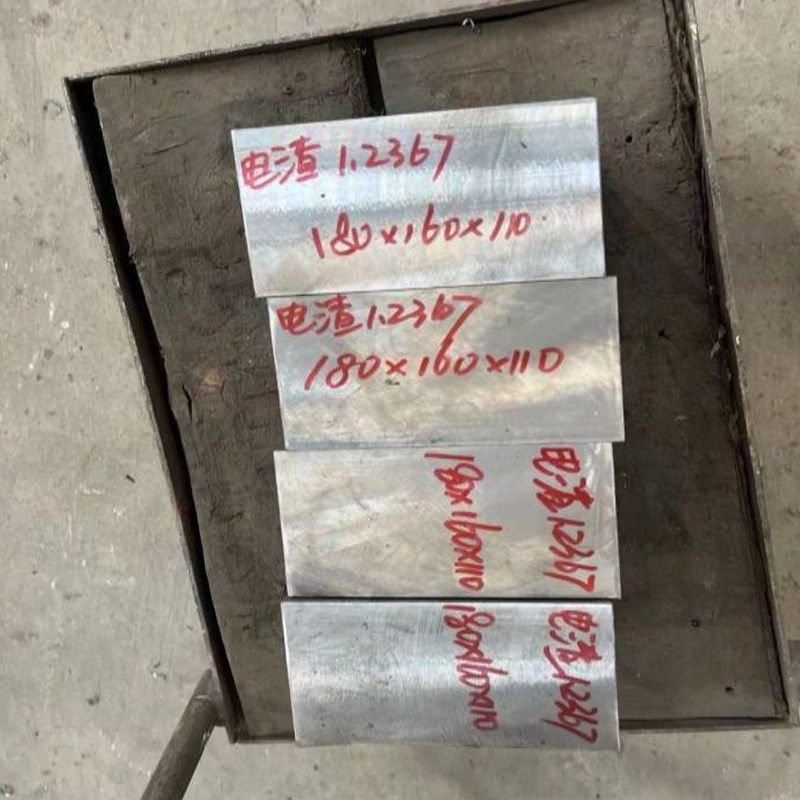 电渣 1.2367
180×160×110
电渣1.2367
180×160×110
电渣1.2367
180×160×110
电渣1.2367
180×160×110